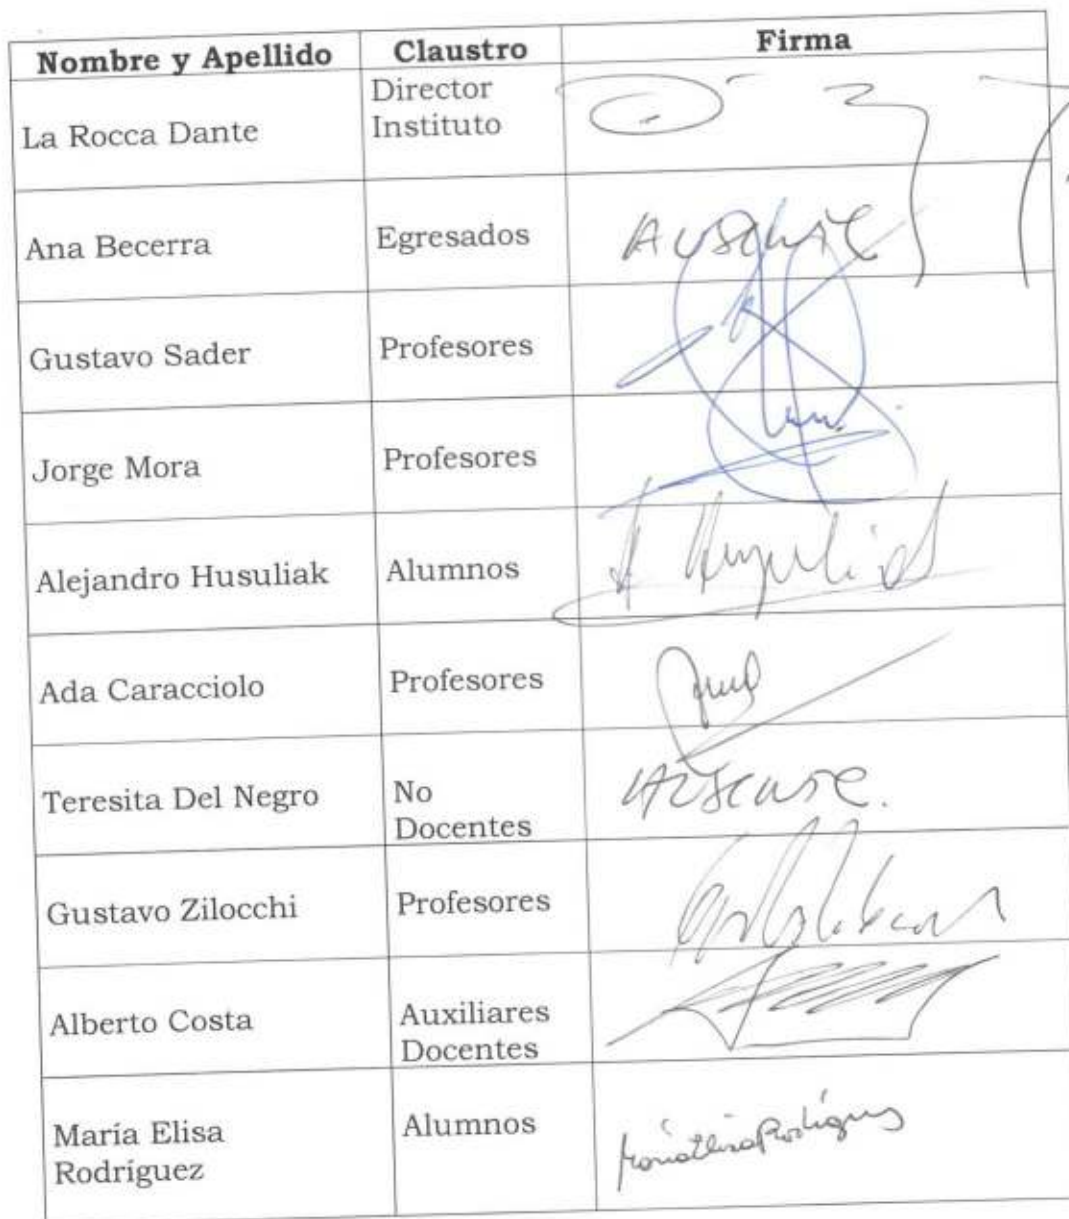 Nombre y Apellido Claustro Firma
La Rocca Dante Director
Instituto
Ana Becerra Egresados Ausente
Gustavo Sader Profesores
Jorge Mora Profesores
Alejandro Husuliak Alumnos
Ada Caracciolo Profesores
Teresita Del Negro No
Docentes Ausente.
Gustavo Zilocchi Profesores
Alberto Costa Auxiliares
Docentes
María Elisa
Rodríguez Alumnos María Elisa Rodríguez